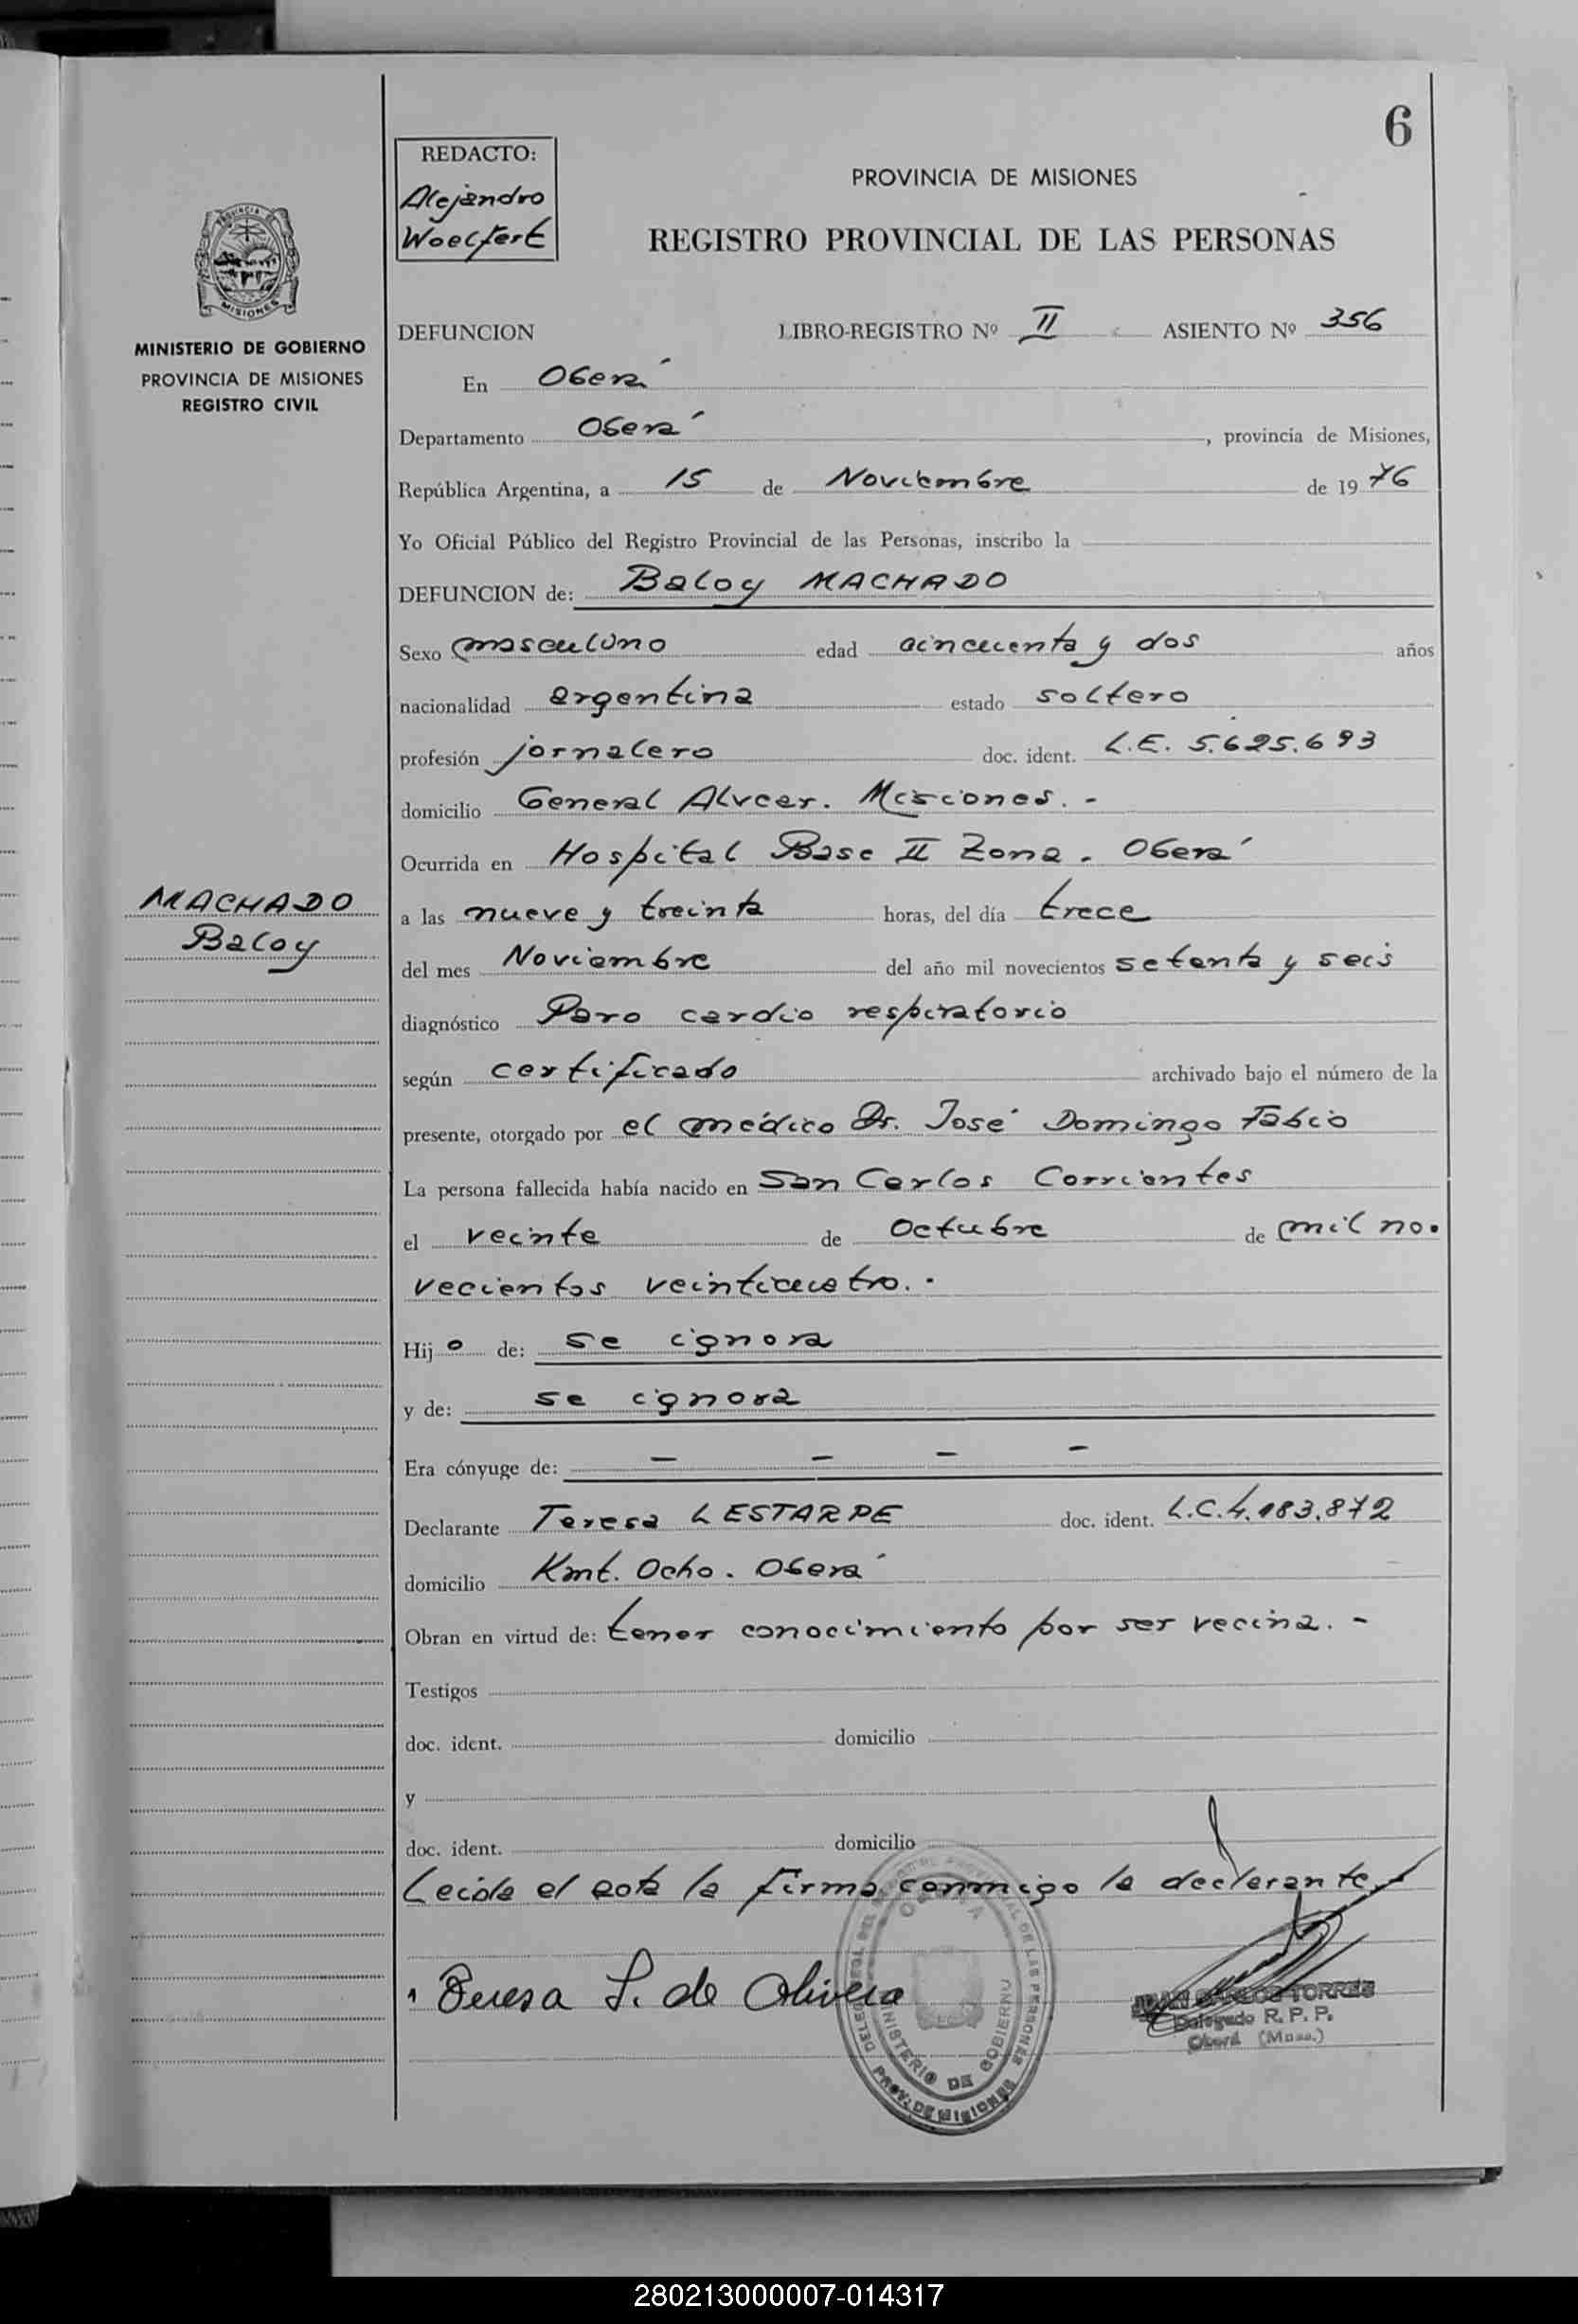 6
REDACTO:
Alejandro
Woelfert
PROVINCIA DE MISIONES
REGISTRO PROVINCIAL DE LAS PERSONAS
PROVINCIA DE
MISIONES
MINISTERIO DE GOBIERNO
PROVINCIA DE MISIONES
REGISTRO CIVIL
DEFUNCION LIBRO-REGISTRO Nº II ASIENTO Nº 356
En Oberá
Departamento Oberá, provincia de Misiones,
República Argentina, a 15 de Noviembre de 1976
Yo Oficial Público del Registro Provincial de las Personas, inscribo la
DEFUNCION de: Baloy MACHADO
Sexo masculino edad cincuenta y dos años
nacionalidad argentina estado soltero
profesión jornalero doc. ident. L.E. 5.625.693
domicilio General Alvear. Misiones. -
Ocurrida en Hospital Base II Zona. Oberá
MACHADO
Baloy
a las nueve y treinta horas, del día trece
del mes Noviembre del año mil novecientos setenta y seis
diagnóstico Paro cardio respiratorio
según certificado archivado bajo el número de la
presente, otorgado por el médico Dr. José Domingo Fabio
La persona fallecida había nacido en San Carlos Corrientes
el veinte de Octubre de mil no.
vecientos veinticuatro. -
Hijo de: se ignora
y de: se ignora
Era cónyuge de: - - - -
Declarante Teresa LESTARPE doc. ident. L.C. 4.183.872
domicilio Kmt. Ocho. Oberá
Obran en virtud de: tener conocimiento por ser vecina. -
Testigos
doc. ident. domicilio
y
doc. ident. domicilio
Leida el acta la firma conmigo la declarante
Teresa L. de Olivera
MINISTERIO DE GOBIERNO
PROV. DE MISIONES
JUAN CARLOS TORRES
Delegado R. P. P.
Oberá (Mnes.)
280213000007-014317